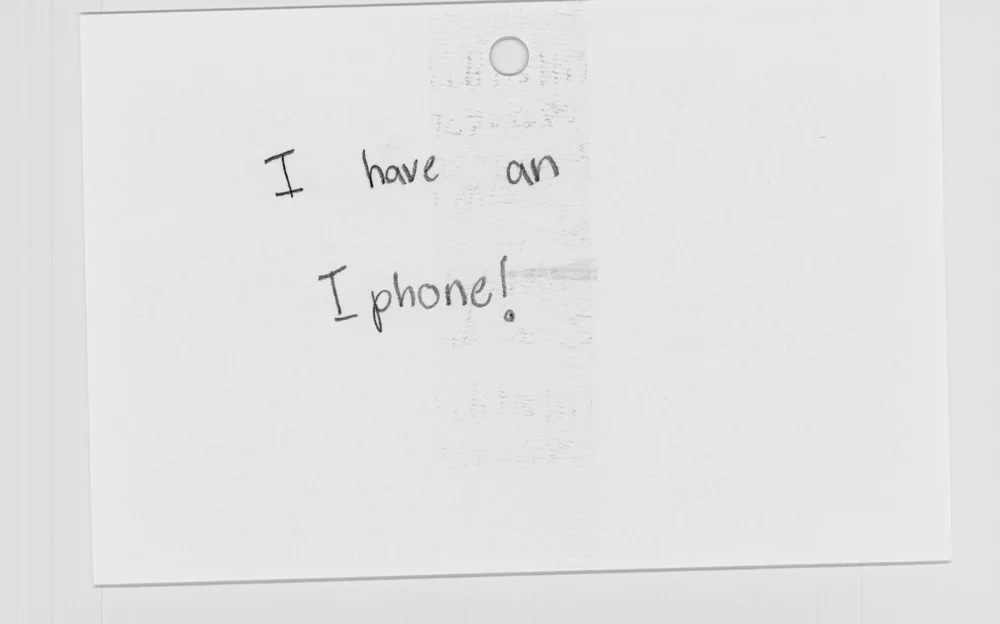 I have an
Iphone!